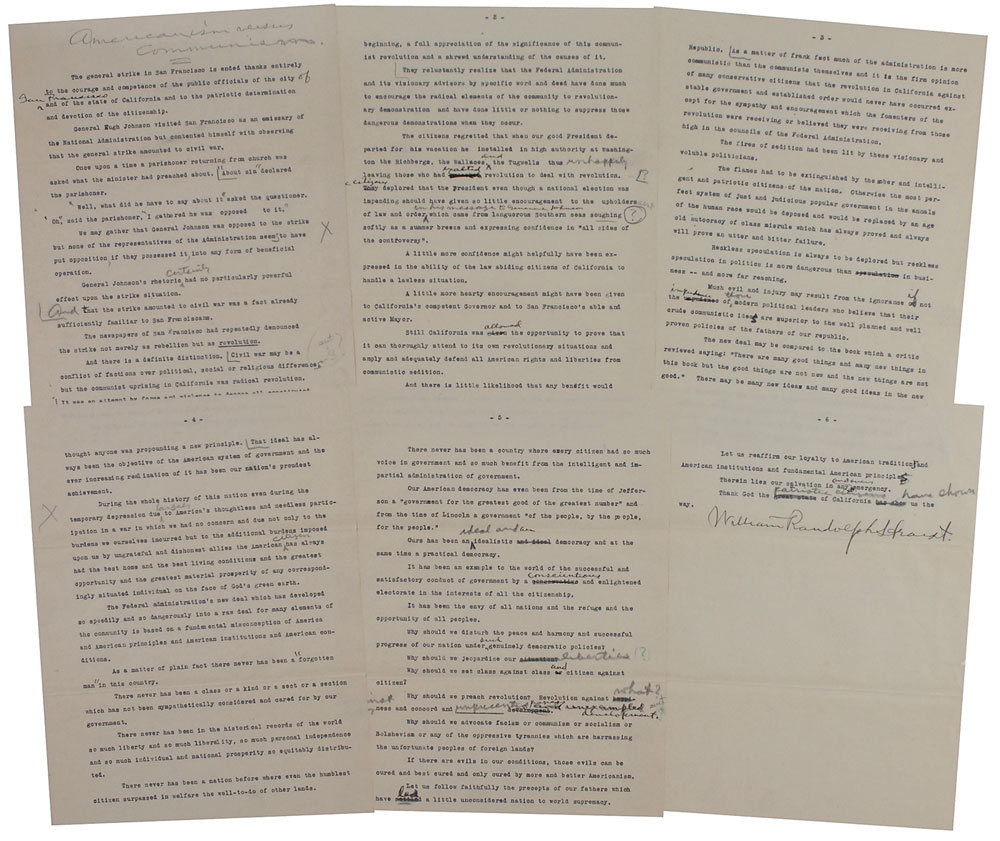 Americanism versus
Communism.
The general strike in San Francisco is ended thanks entirely
to the courage and competence of the public officials of the city of
San Francisco
and of the state of California and to the patriotic determination
and devotion of the citizenship.
General Hugh Johnson visited San Francisco as an emissary of
the National Administration but contented himself with observing
that the general strike amounted to civil war.
Once upon a time a parishioner returning from church was
asked what the minister had preached about. "About sin" declared
the parishoner.
"Well, what did he have to say about it" asked the questioner.
"Oh", said the parishoner, "I gathered he was opposed to it."
We may gather that General Johnson was opposed to the strike
but none of the representatives of the Administration seem to have
put opposition if they possessed it into any form of beneficial
operation.
certainly
General Johnson's rhetoric had no particularly powerful
effect upon the strike situation.
And that the strike amounted to civil war was a fact already
sufficiently familiar to San Franciscans.
The newspapers of San Francisco had repeatedly denounced
the strike not merely as rebellion but as revolution.
And there is a definite distinction. Civil war may be a
conflict of factions over political, social or religious differences
but the communist uprising in California was radical revolution.
- 2 -
beginning, a full appreciation of the significance of this commun-
ist revolution and a shrewd understanding of the causes of it.
They reluctantly realize that the Federal Administration
and its visionary advisers by specific word and deed have done much
to encourage the radical elements of the community to revolution-
ary demonstration and have done little or nothing to suppress those
dangerous demonstrations when they occur.
The citizens regretted that when our good President de-
parted for his vacation he installed in high authority at Washing-
ton the Richbergs, the Wallaces, and the Tugwells thus unhappily
leaving those who had exalted revolution to deal with revolution.
citizens
They deplored that the President even though a national election was
impending should have given so little encouragement to the upholders
in his message to General Johnson
of law and order, which came from languorous Southern seas soughing (?)
softly as a summer breeze and expressing confidence in "all sides of
the controversy".
A little more confidence might helpfully have been ex-
pressed in the ability of the law abiding citizens of California to
handle a lawless situation.
A little more hearty encouragement might have been given
to California's competent Governor and to San Francisco's able and
active Mayor.
Still California was allowed the opportunity to prove that
it can thoroughly attend to its own revolutionary situations and
amply and adequately defend all American rights and liberties from
communistic sedition.
And there is little likelihood that any benefit would
- 3 -
Republic. As a matter of frank fact much of the administration is more
communistic than the communists themselves and it is the firm opinion
of many conservative citizens that the revolution in California against
stable government and established order would never have occurred ex-
cept for the sympathy and encouragement which the fomenters of the
revolution were receiving or believed they were receiving from those
high in the councils of the Federal Administration.
The fires of sedition had been lit by these visionary and
voluble politicians.
The flames had to be extinguished by the sober and intelli-
gent and patriotic citizens of the nation. Otherwise the most per-
fect system of just and judicious popular government in the annals
of the human race would be deposed and would be replaced by an age
old autocracy of class misrule which has always proved and always
will prove an utter and bitter failure.
Reckless speculation is always to be deplored but reckless
speculation in politics is more dangerous than speculation in busi-
ness -- and more far reaching.
Much evil and injury may result from the ignorance if not
the impudence of those modern political leaders who believe that their
crude communistic ideas are superior to the well planned and well
proven policies of the fathers of our republic.
The new deal may be compared to the book which a critic
reviewed saying: "There are many good things and many new things in
this book but the good things are not new and the new things are not
good." There may be many new ideas and many good ideas in the new
- 4 -
thought anyone was propounding a new principle. That ideal has al-
ways been the objective of the American system of government and the
ever increasing realization of it has been our nation's proudest
achievement.
During the whole history of this nation even during the
largely
temporary depression due to America's thoughtless and needless partic-
ipation in a war in which we had no concern and due not only to the
burdens we ourselves incurred but to the additional burdens imposed
upon us by ungrateful and dishonest allies the American citizen has always
had the best home and the best living conditions and the greatest
opportunity and the greatest material prosperity of any correspond-
ingly situated individual on the face of God's green earth.
The Federal administration's new deal which has developed
so speedily and so dangerously into a raw deal for many elements of
the community is based on a fundamental misconception of America
and American principles and American institutions and American con-
ditions.
As a matter of plain fact there never has been a "forgotten
man" in this country.
There never has been a class or a kind or a sect or a section
which has not been sympathetically considered and cared for by our
government.
There never has been in the historical records of the world
so much liberty and so much liberality, so much personal independence
and so much individual and national prosperity so equitably distribu-
ted.
There never has been a nation before where even the humblest
citizen surpassed in welfare the well-to-do of other lands.
- 5 -
There never has been a country where every citizen had so much
voice in government and so much benefit from the intelligent and im-
partial administration of government.
Our American democracy has even been from the time of Jeffer-
son a "government for the greatest good of the greatest number" and
from the time of Lincoln a government "of the people, by the people,
for the people."
ideal and an
Ours has been an idealistic and ideal democracy and at the
same time a practical democracy.
It has been an example to the world of the successful and
satisfactory conduct of government by a conscientious and enlightened
electorate in the interests of all the citizenship.
It has been the envy of all nations and the refuge and the
opportunity of all peoples.
Why should we disturb the peace and harmony and successful
progress of our nation under such genuinely democratic policies?
Why should we jeopardize our liberties (?)
Why should we set class against class and citizen against
citizen?
what?
Why should we preach revolution? Revolution against
ness and concord and unprecedented and unexampled
development.
Why should we advocate fascism or communism or socialism or
Bolshevism or any of the oppressive tyrannies which are harrassing
the unfortunate peoples of foreign lands?
If there are evils in our conditions, those evils can be
cured and best cured and only cured by more and better Americanism.
Let us follow faithfully the precepts of our fathers which
have led a little unconsidered nation to world supremacy.
- 6 -
Let us reaffirm our loyalty to American traditions and
American institutions and fundamental American principles.
Therein lies our salvation in any emergency.
Thank God the patriotic citizens of California have shown us the
way.
William Randolph Hearst.